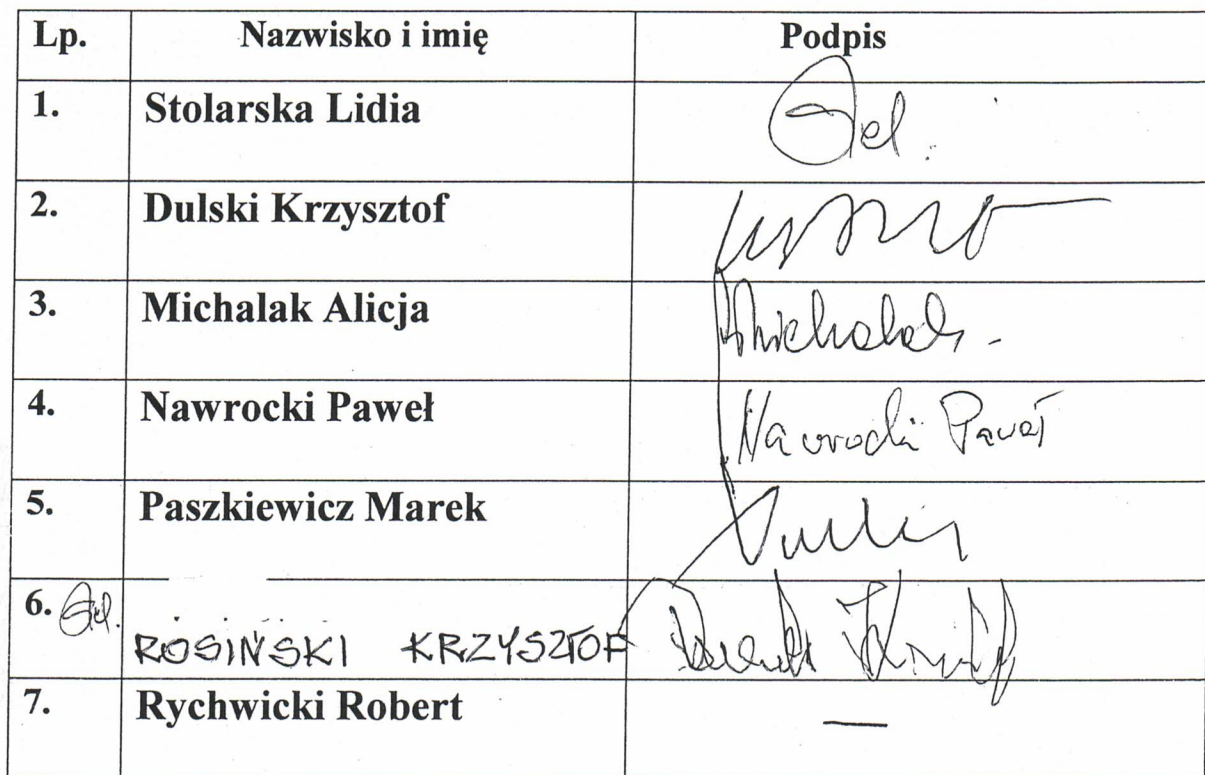 Lp. Nazwisko i imię Podpis
1. Stolarska Lidia
2. Dulski Krzysztof
3. Michalak Alicja Michalak
4. Nawrocki Paweł Nawrocki Paweł
5. Paszkiewicz Marek
6. ROSIŃSKI KRZYSZTOF
7. Rychwicki Robert —